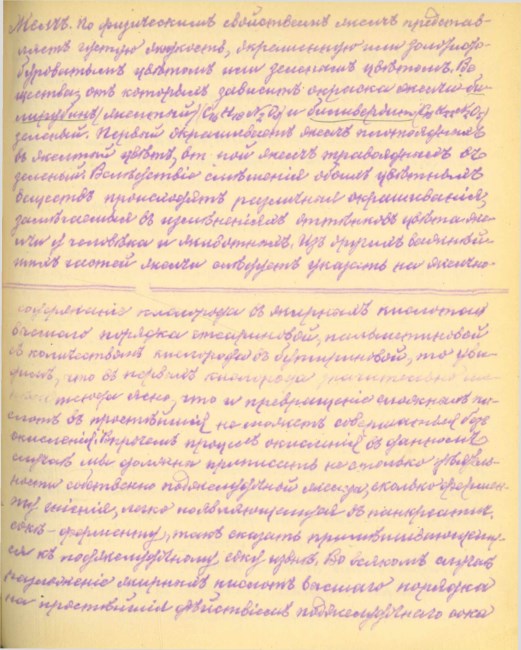 Желчь. По физическимъ свойствамъ желчь представ-
ляетъ густую жидкость, окрашенную или золотисто-
буроватымъ цвѣтомъ или зеленымъ цвѣтомъ. Ве
щества, отъ которыхъ зависитъ окраска желчи би-
лирубинъ (желтый) и биливердинъ
зеленый. Первый окрашиваетъ желчь плотоядныхъ
въ желтый цвѣтъ, от ной желчь травоядныхъ въ
зеленый. Вслѣдствіе смѣшенія обоихъ цвѣтныхъ
веществъ происходятъ различныя окрашиванія,
замѣчаемыя въ измѣненіяхъ оттѣнковъ цвѣта же-
лчи у человѣка и животныхъ. Изъ другихъ важнѣй-
шихъ частей желчи слѣдуетъ указать на желчно-
содержаніе кислорода въ жирныхъ кислотахъ
высшаго порядка стеариновой, пальметиновой
съ количествомъ кислорода въ бутириновой, то уви-
димъ, что въ первыхъ кислорода значительно
отсюда ясно, что и превращеніе сложныхъ ки-
слотъ въ простѣйшія не можетъ совершаться безъ
окисленія. Впрочемъ процессъ окисленія въ данномъ
случаѣ мы должны приписать не столько дѣятель-
ности собственно поджелудочной железы, сколько фермен-
ту гніенія, легко появляющемуся въ панкреатич.
сокѣ - ферменту, такъ сказать примѣшивающему-
ся къ поджелудочному соку извнѣ. Во всякомъ случаѣ
разложеніе жирныхъ кислотъ высшаго порядка
на простѣйшія дѣйствіемъ поджелудочнаго сока